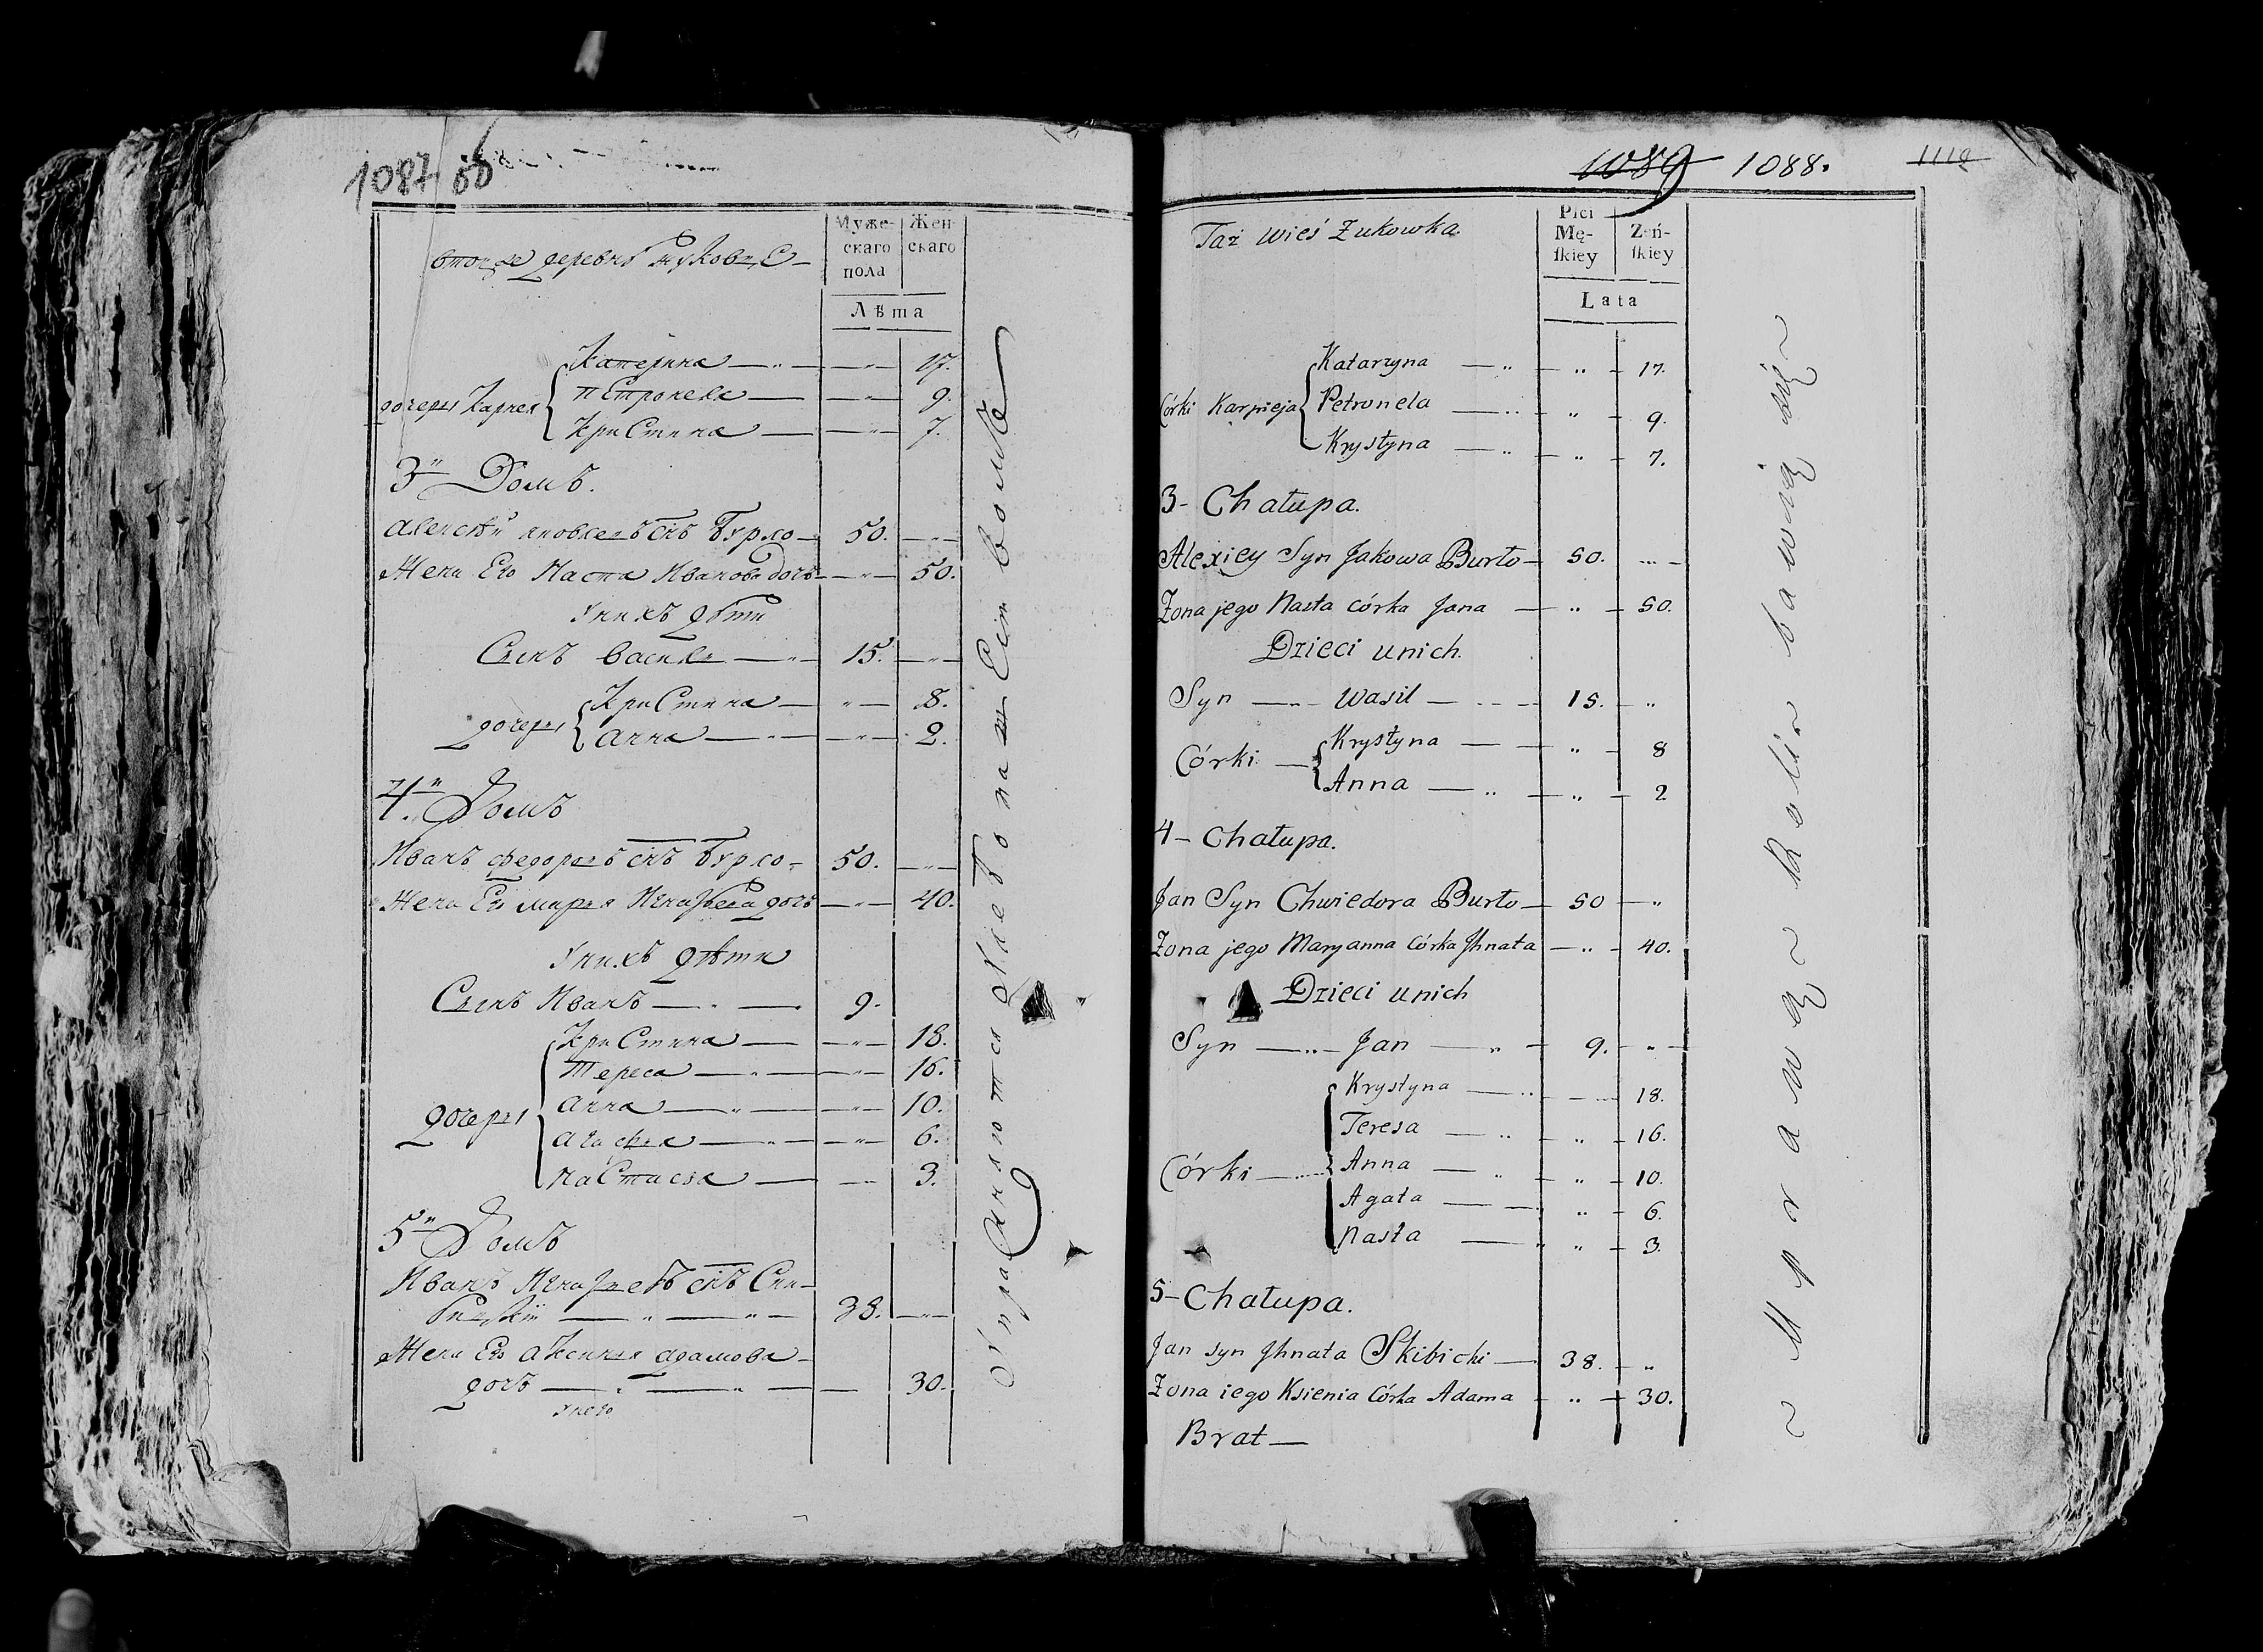 1087 об
Муже-
скаго
пола
Жен
скаго
Лѣта
Катерина 17.
дочеры Карпея Петронеля 9.
Кристина 7.
3й Домъ.
Алексѣй яковлевъ снъ Бурло 50.
Жена Его Наста Иванова дочь 50.
у нихъ дѣти
Сынъ Василь 15.
дочеры Кристина 8.
Анна 2.
4й Домъ
Иванъ федоровъ снъ Бурло 50.
Жена Его Маря Игнатьева дочь 40.
у нихъ дѣти
Сынъ Иванъ 9.
Кристина 18.
Тереса 16.
дочеры Анна 10.
Агафея 6.
Настася 3.
5й Домъ
Иванъ Игнатьевъ снъ Ски-
бицкій 38.
Жена Его Аксиня Адамова
дочь 30.
у него
1089 1088. 1118
Taż wieś Żukowka.
Płci
Mę-
skiey
Żeń-
skiey
Lata
Katarzyna 17.
Córki Karpieja Petronela 9.
Krystyna 7.
3- Chałupa.
Alexiey Syn Jakowa Burło 50.
Żona jego Nasta córka Jana 50.
Dzieci unich.
Syn Wasil 15.
Córki Krystyna 8
Anna 2
4- Chałupa.
Jan Syn Chwiedora Burło 50
Żona jego Maryanna Córka Jhnata 40.
Dzieci unich
Syn Jan 9.
Krystyna 18.
Teresa 16.
Córki Anna 10.
Agata 6.
Nasta 3.
5- Chałupa.
Jan syn Jhnata Skibicki 38.
Żona iego Ksienia Córka Adama 30.
Brat
Uprawą Roli bawią się